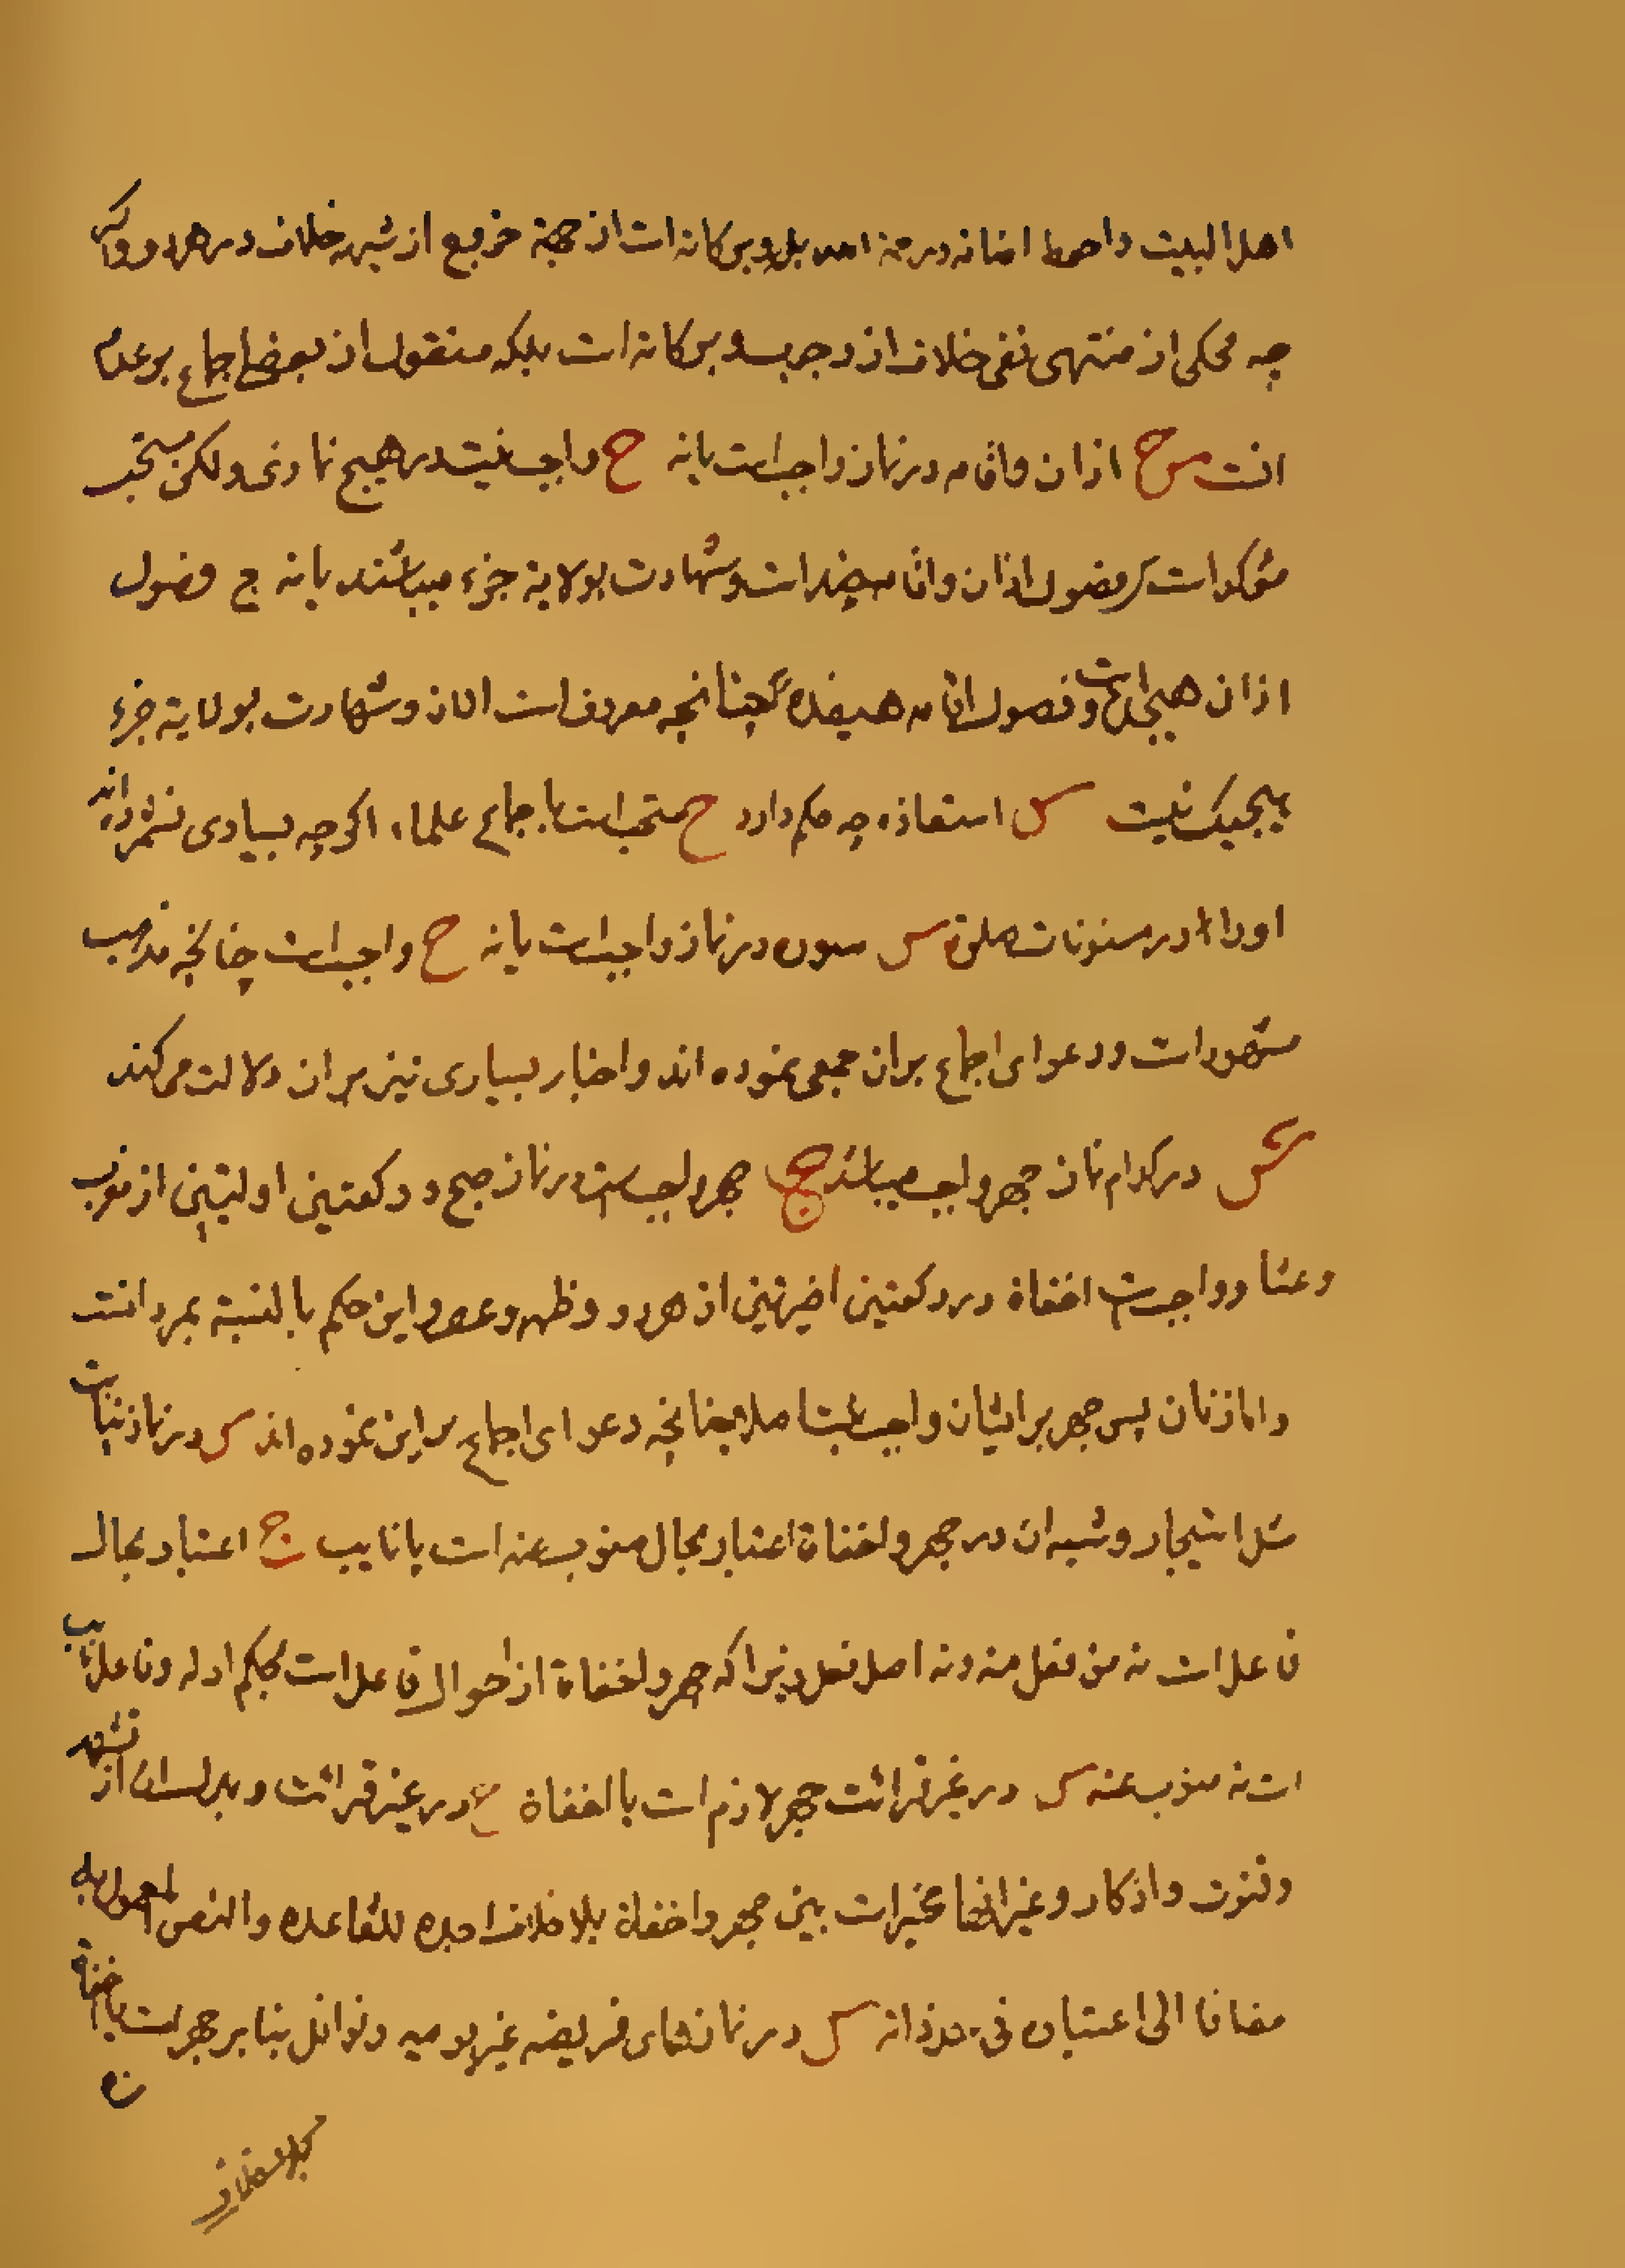 اهل البیت و احوط اضافه در منه احد بل وبرکاته است از جهة خروج از شبهه خلاف در هر دو و اگر
چه محکی از منتهی نفی خلاف از وجوب وبرکاته است بلکه منقول از بعضی اجماع بر عدم
انست س ج اذان و اقامه در نماز واجب است یا نه ج واجب نیست در هیچ نمازی ولکن مستحب
مؤکد است س فصول اذان و اقامه چند است و شهادت بولایة جزء میباشند یا نه ج فصول
اذان هیجده است و فصول اقامه هیفده چنانچه معروف است الان و شهادت بولایة جزء
هیچیک نیست س استعاذه چه حکم دارد ج مستحب است باجماع علماء اگر چه بسیاری نشمرده‌اند
او را در مسنونات صلوة س سوره در نماز واجب است یا نه ج واجب است چنانچه مذهب
مشهور است و دعوای اجماع بر ان جمعی نموده اند و اخبار بسیاری نیز بر ان دلالت میکند
س در کدام نماز جهر واجب میباشد ج جهر واجب است در نماز صبح و دو رکعتین اولیتین از مغرب
و عشا و واجب است اخفاة در رکعتین اخیرتین از هر دو و ظهر و عصر و این حکم بالنسبة بمرد انست
و اما زنان پس جهر بر ایشان واجب نیست اصلا چنانچه دعوای اجماع بر این نموده اند س در نماز نیابت
مثل استیجار و شبه ان در جهر و اخفاة اعتبار بحال منوب عنه است یا نایب ج اعتبار بحال
فاعل است نه من فعل منه و نه اصل فعل زیرا که جهر و اخفاة از احوال فاعل است بحکم ادله و فاعل نایب
است نه منوب عنه س در غیر قرائت جهر لازم است یا اخفاة ج در غیر قرائت و بدل ان از تشهد
و قنوت و اذکار و غیر انها مخیر است بین جهر و اخفاة بلا خلاف اجده للقاعده والنص المعمول به
مضافا الی اعتباره فی حد ذاته س در نمازهای فریضه غیر یومیه و نوافل بنا بر جهر است یا اخفاة